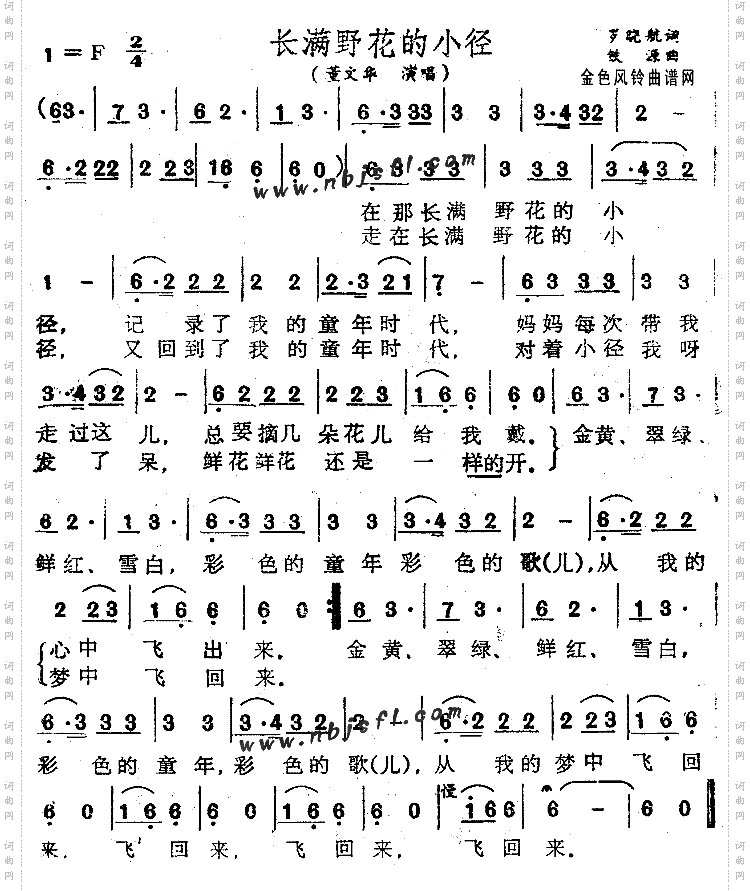 长满野花的小径
1=F 2/4
罗晓航词
铁源曲
(董文华 演唱)
金色风铃曲谱网
(63· | 7 3· | 6 2· | 1 3· | 6·3 33 | 3 3 | 3·4 32 | 2 -
6·2 22 | 2 23 | 16 6 | 6 0) | 6 3 3 3 | 3 33 | 3·4 32
www.nbjsfl.com
在那长满 野花的 小
走在长满 野花的 小
1 - | 6·2 22 | 2 2 | 2·3 21 | 7 - | 63 33 | 3 3
径, 记 录了 我 的 童 年时 代, 妈妈 每次 带 我
径, 又 回到了 我 的 童 年时 代, 对着 小径 我 呀
3·4 32 | 2 - | 62 22 | 2 2 23 | 16 6 | 6 0 | 6 3· | 7 3·
走 过这 儿, 总要摘几 朵花儿 给 我 戴。 金黄、 翠绿、
发 了 呆, 鲜花鲜花 还是 一 样的开。
6 2· | 1 3· | 6·3 33 | 3 3 | 3·4 32 | 2 - | 6·2 22
鲜红、 雪白, 彩 色的 童 年 彩 色的 歌(儿),从 我的
2 23 | 16 6 | 6 0 :| 6 3· | 7 3· | 6 2· | 1 3·
心中 飞 出 来。 金 黄、 翠绿、 鲜红、 雪白,
梦中 飞 回 来。
6·3 33 | 3 3 | 3·4 32 | 2 - | 6·2 22 | 2 23 | 16 6
www.nbjsfl.com
彩 色的 童 年, 彩 色的 歌(儿), 从 我的 梦中 飞 回
6 0 | 16 6 | 6 0 | 16 6 | 6 0 | 慢 1 66 | 6 - | 6 0
来, 飞 回 来, 飞 回来, 飞 回 来。
词曲网